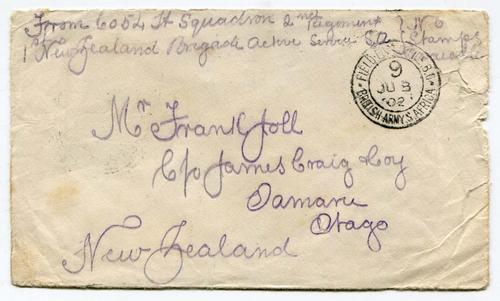 From 6054 H Squadron 2nd Regiment } No
1 New Zealand Brigade Active Service S.A. } Stamps
FIELD POST OFFICE
9
JU 3
02
BRITISH ARMY S. AFRICA
Mr Frank Joll
C/o James Craig & Coy
Oamaru
Otago
New Zealand